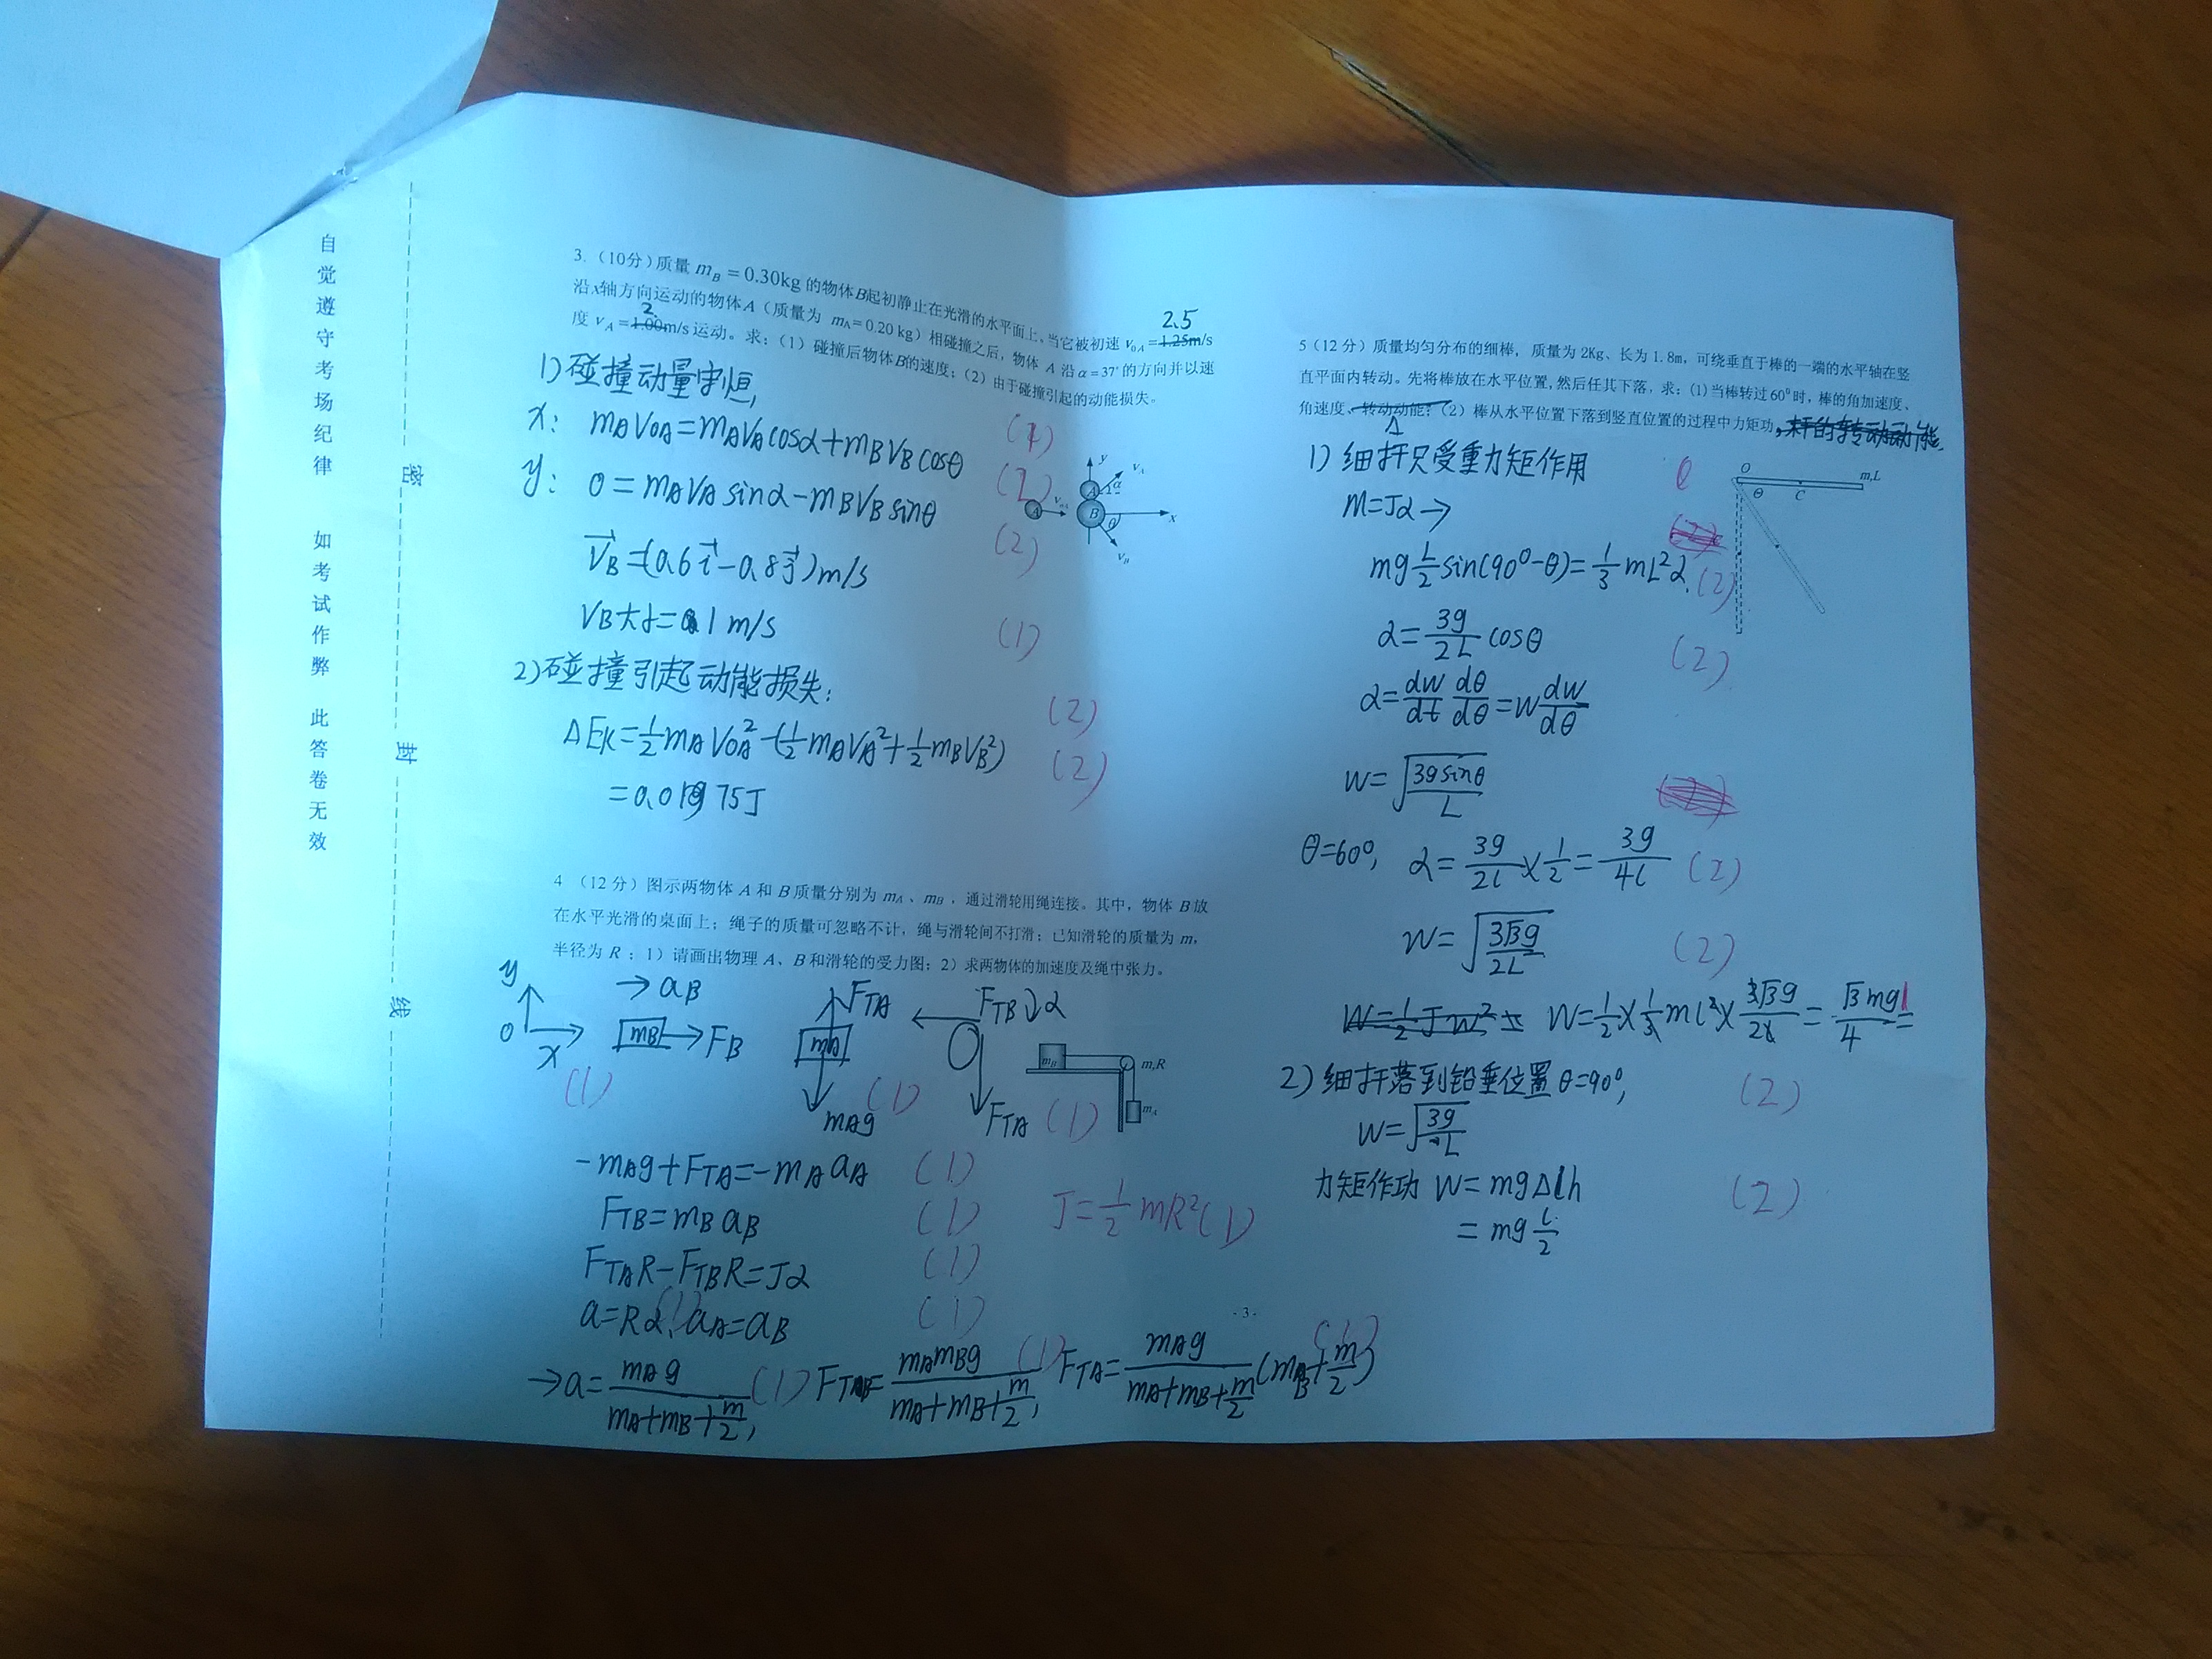 自觉遵守考场纪律 如考试作弊 此答卷无效
密
封
线
3.（10分）质量 m_B = 0.30kg 的物体B起初静止在光滑的水平面上，当它被初速 v_0A = 1.25m/s
2.5
沿x轴方向运动的物体A（质量为 m_A=0.20 kg）相碰撞之后，物体 A 沿 α=37° 的方向并以速
2
度 v_A = 1.00m/s 运动。求：（1）碰撞后物体B的速度；（2）由于碰撞引起的动能损失。
1)碰撞动量守恒,
x: mAVOA=mAVAcosα+mBVBcosθ
y: 0=mAVAsinα-mBVBsinθ (2)
VB=(0.6i-0.8j)m/s (2)
VB大小=1m/s (1)
y
v_A
α
A
v_0A
A
B
θ
x
v_B
2)碰撞引起动能损失:
(2)
ΔEk=½mAVOA²-(½mAVA²+½mBVB²) (2)
4 （12分）图示两物体 A 和 B 质量分别为 m_A、m_B，通过滑轮用绳连接。其中，物体 B 放
在水平光滑的桌面上；绳子的质量可忽略不计，绳与滑轮间不打滑；已知滑轮的质量为 m，
半径为 R ；1）请画出物理 A、B和滑轮的受力图；2）求两物体的加速度及绳中张力。
y
→aB
FTA
FTB α
0
x
mB
FB
mA
(1)
(1)
mAg
FTA (1)
m_B
m,R
m_A
-mAg+FTA=-mAaA (1)
FTB=mBaB (1) J=½mR²(1)
FTAR-FTBR=Jα (1)
a=Rα, (1) aA=aB (1)
→a=mAg/(mA+mB+m/2), (1) FTB=mAmBg/(mA+mB+m/2), (1) FTA=mAg/(mA+mB+m/2)(mB+m/2) (1)
5（12 分）质量均匀分布的细棒，质量为 2Kg、长为 1.8m，可绕垂直于棒的一端的水平轴在竖
直平面内转动。先将棒放在水平位置，然后任其下落，求：(1)当棒转过60⁰时，棒的角加速度、
角速度、转动动能；（2）棒从水平位置下落到竖直位置的过程中力矩功,
1) 细杆只受重力矩作用
M=Jα→
O
θ
C
m,L
mg L/2 sin(90°-θ)=⅓mL²α. (2)
α=3g/2L cosθ (2)
α=dw/dt dθ/dθ=w dw/dθ
w=√(3gsinθ/L)
θ=60°, α=3g/2l×½=3g/4l (2)
w=√(3√3g/2L) (2)
W=½Jw² W=½×⅓ml²×3√3g/2l=√3mgl/4=
2) 细杆落到铅垂位置θ=90°, (2)
w=√(3g/L)
力矩作功 W=mgΔh (2)
=mg l/2
- 3 -